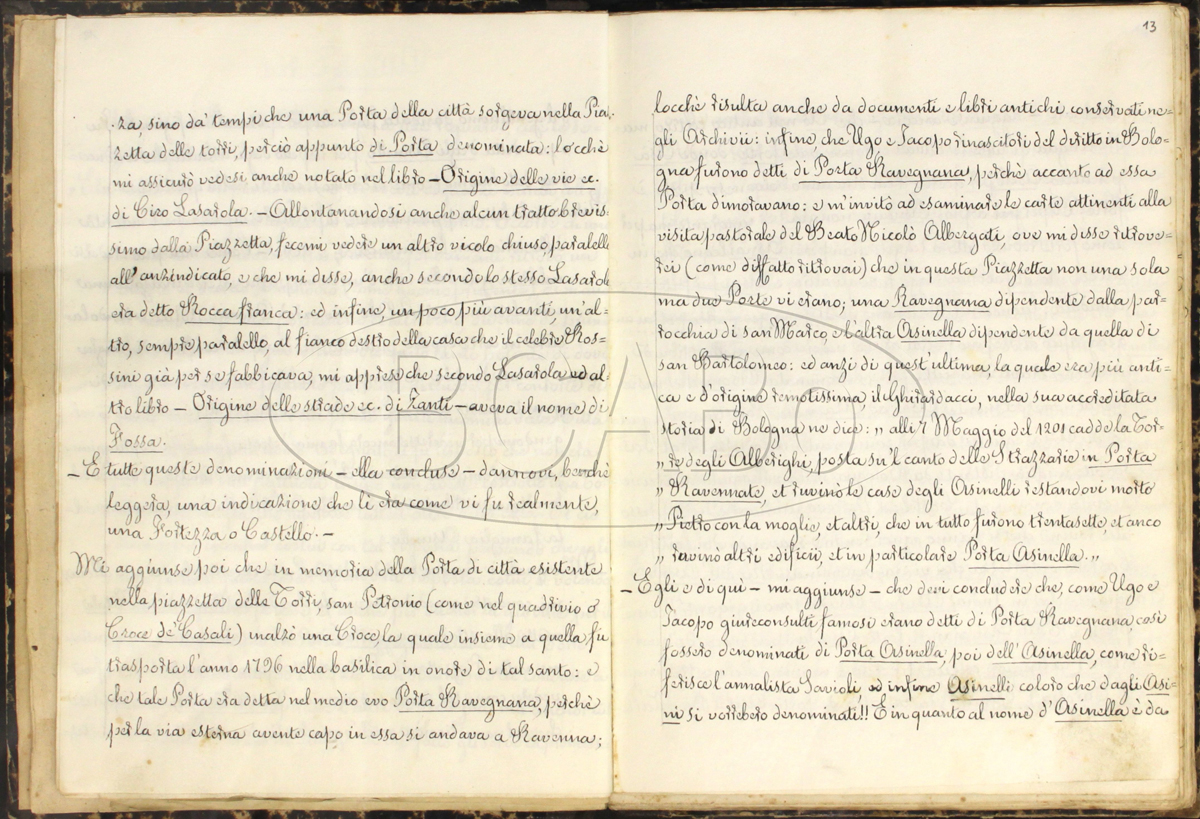 ·za sino da' tempi che una Porta della città sorgeva nella Piaz-
zetta delle torri, perciò appunto di Porta denominata: locchè
mi assicurò vedesi anche notato nel libro — Origine delle vie ec.
di Ciro Lasarola. — Allontanandosi anche alcun tratto brevis-
simo dalla Piazzetta, fecemi vedere un altro vicolo chiuso, paralello
all'anzindicato, e che mi disse, anche secondo lo stesso Lasarola
era detto Rocca franca: ed infine, un poco più avanti, un'al-
tro, sempre paralello, al fianco destro della casa che il celebre Ros-
sini già per se fabbicava, mi apprese che secondo Lasarola ed al-
tro libro — Origine delle strade ec. di Zanti — aveva il nome di
Fossa.
— E tutte queste denominazioni — ella concluse — dannovi, benchè
leggera, una indicazione che li era come vi fu realmente,
una Fortezza o Castello. —
Mi aggiunse poi che in memoria della Porta di città esistente
nella piazzetta delle Torri, san Petronio (come nel quadrivio o
Croce de' Casali) inalzò una Croce, la quale insieme a quella, fu
trasporta l'anno 1796 nella basilica in onore di tal santo: e
che tale Porta era detta nel medio evo Porta Ravegnana, perchè
per la via esterna avente capo in essa si andava a Ravenna;
13
locchè risulta anche da documenti e libri antichi conservati ne-
gli Archivii: infine che Ugo e Jacopo rinascitori del diritto in Bolo-
gna furono detti di Porta Ravegnana, perchè accanto ad essa
Porta dimoravano: e m'invitò ad esaminare le carte attinenti alla
visita pastorale del Beato Nicolò Albergati, ove mi disse ritrove-
rei (come diffatto ritrovai) che in questa Piazzetta non una sola
ma due Porte vi erano; una Ravegnana dipendente dalla par-
rocchia di san Marco, e l'altra Asinella dipendente da quella di
san Bartolomeo: ed anzi di quest'ultima, la quale era più anti-
ca e d'origine remotissima, il Ghirardacci, nella sua accreditata
storia di Bologna ne dice: „ alli 7 Maggio del 1201 cadde la Tor-
„ re degli Alberighi, posta su'l canto delle Strazzarie in Porta
„ Ravennate, et ruvinò le case degli Asinelli restandovi morto
„ Pietro con la moglie, et altri, che in tutto furono trentasette, et anco
„ ruvinò altri edificii, et in particolare Porta Asinella. „
— Egli e di quì — mi aggiunse — che devi concludere che, come Ugo e
Jacopo giureconsulti famosi erano detti di Porta Ravegnana, così
fossero denominati di Porta Asinella, poi dell'Asinella, come ri-
ferisce l'annalista Savioli, ed infine Asinelli coloro che dagli Asi-
ni si vorrebero denominati!! E in quanto al nome d'Asinella è da
BCABo